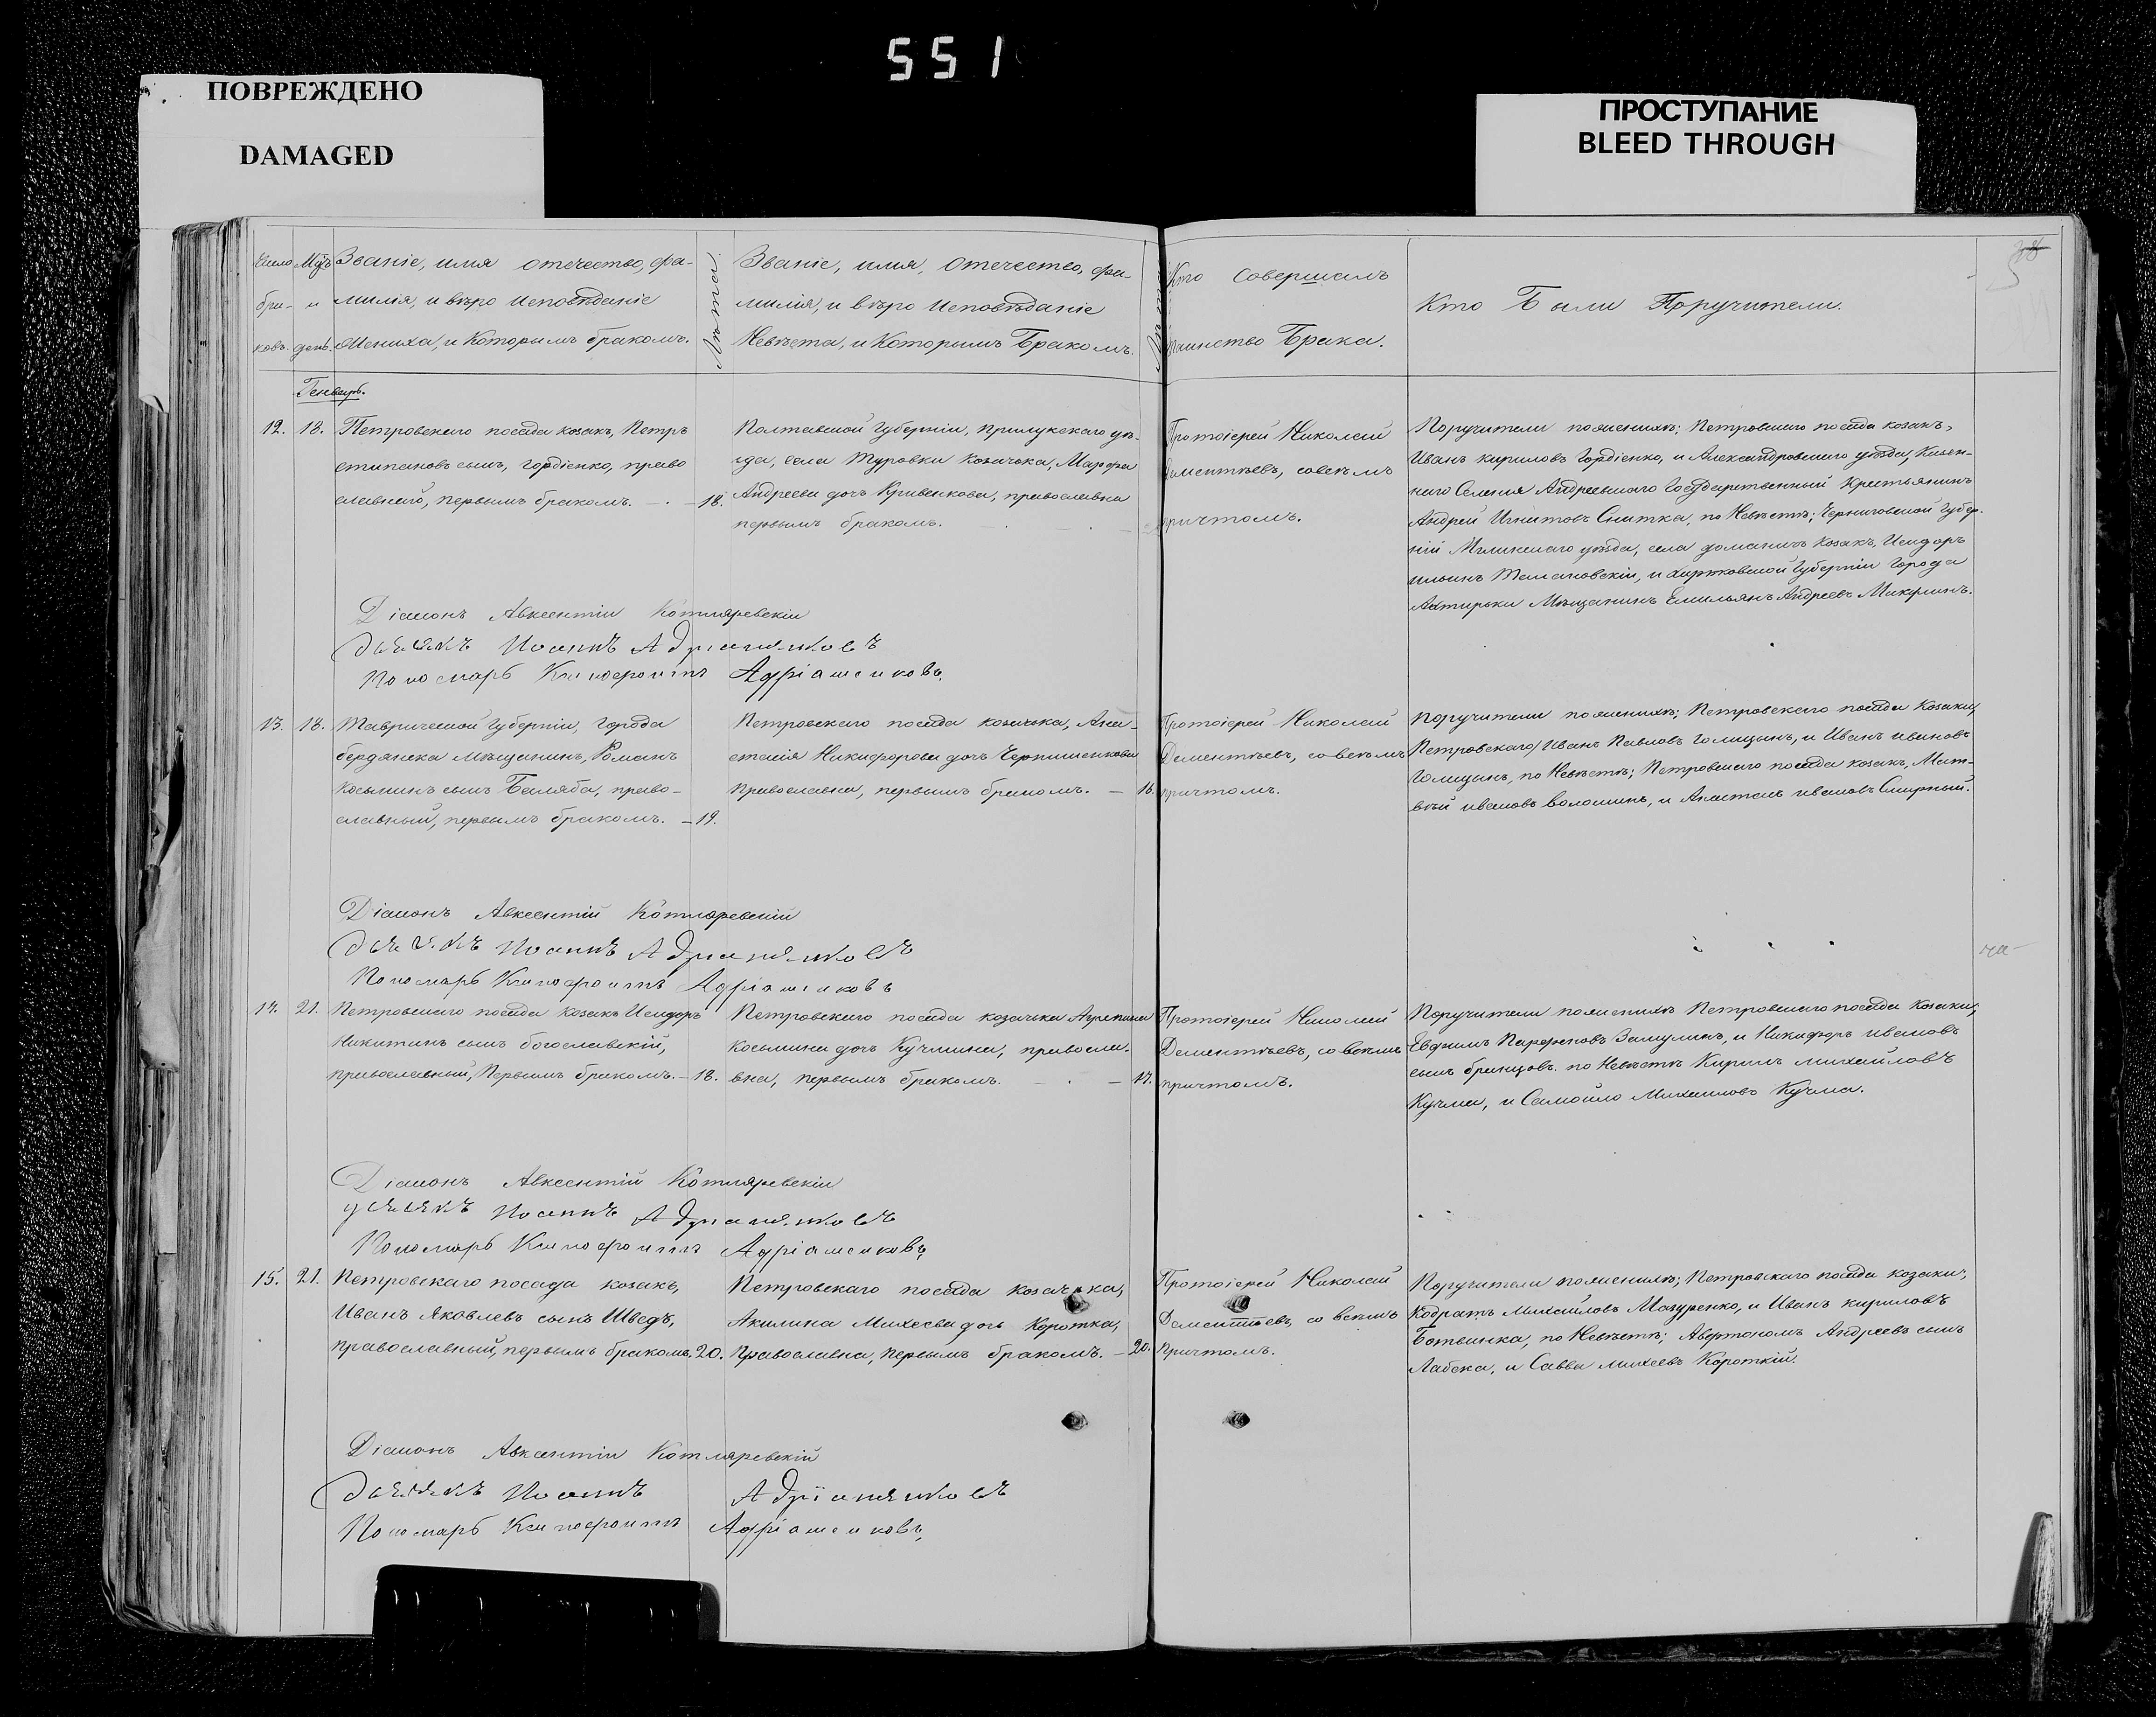 551
ПОВРЕЖДЕНО
DAMAGED
ПРОСТУПАНИЕ
BLEED THROUGH
Число
бра-
ковъ.
Мцъ
и
день.
Званіе, имя отечество, фа-
милія, и вѣро исповѣданіе
Жениха, и Которымъ бракомъ.
Лѣта.
Званіе, имя, Отечество, фа-
милія, и вѣро исповѣданіе
Невѣста, и Которымъ Бракомъ.
Лѣта
Кто Совершалъ
таинство Брака.
Кто Были Поручители.
Генварь.
12. 18. Петровскаго посада козакъ, Петръ
стипановъ сынъ, Гордіенко, право
славный, первымъ бракомъ. — 18.
Полтавской Губерніи, Прилукскаго уѣ-
зда, села Туровки Козачька, Марфа
Андреева дочь Кривенкова, православна
первымъ бракомъ.
Протоіерей Николай
Дементьевъ, совсемъ
причтомъ.
Поручители поженихѣ; Петровскаго посада козакъ,
Иванъ кириловъ Гордіенко, и Александровскаго уѣзда, Казен-
наго Селенія Андреевскаго Государственный Крестьянинъ
Андрей Снитка, по Невѣстѣ; Черниговской Губер-
ніи Мглинскаго уѣзда, села козакъ, Исидоръ
ильинъ и Харьковской Губерніи Города
Ахтирьки Мѣщанинъ Емильянъ Андреевъ
Діаконъ Авксентіи Котляревскіи
дьячекъ Иоаннъ Адріаненковъ
Пономарь Ксенофонтъ Адріаненковъ,
13. 18. Таврической Губерніи, Города
бердянска мѣщанинъ, Романъ
Косьминъ сынъ Баляба, право-
славный, первымъ бракомъ. — 19.
Петровскаго посада козачька, Ана-
стасія Никифорова дочь
Православна, первымъ бракомъ. — 18.
Протоіерей Николай
Дементьевъ, совсемъ
причтомъ.
поручители поженихѣ; Петровскаго посада Козаки,
Петровскаго, Иванъ Павловъ Голицынъ, и Иванъ ивановъ
Голицынъ, по Невѣстѣ; Петровскаго посада козакъ, Мат-
вѣй ивановъ волошинъ, и ивановъ Смирный.
Діаконъ Авксентій Котляревскій
дьячекъ Иоаннъ Адріаненковъ
Пономарь Ксенофонтъ Адріаненковъ
14. 21. Петровскаго посада козакъ Исидоръ
Никитинъ сынъ богославскій,
православный, Первымъ бракомъ. — 18.
Петровскаго посада козачька Агрепина
Косьмина дочь Кучмина, правосла-
вна, первымъ бракомъ. — 17.
Протоіерей Николай
Дементьевъ, со всемъ
причтомъ.
Поручители поженихѣ Петровскаго посада Козаки;
Евфимъ Парфеновъ и Никифоръ ивановъ
сынъ бранцовъ. по Невѣстѣ Кирилъ михайловъ
Кучма, и Самойло Михаиловъ Кучма.
Діаконъ Авксентій Котляревскіи
дьячекъ Иоаннъ Адріаненковъ
Пономарь Ксенофонтъ Адріаненковъ,
15. 21. Петровскаго посада козакъ,
Иванъ Яковлевъ сынъ Шведъ,
православный, первымъ бракомъ. 20.
Петровскаго посада козачька,
Акилина Михеева дочь Коротка,
Православна, первымъ бракомъ. — 20.
Протоіерей Николай
Дементьевъ, со всемъ
Причтомъ.
Поручители поженихѣ; Петровскаго посада козаки;
Кодратъ Михайловъ Мазуренко, и Иванъ кириловъ
Ботвинка, по Невѣстѣ; Автономъ Андреевъ сынъ
Лабека, и Савва михеевъ Короткій.
Діаконъ Авксентіи Котляревскій
дьячекъ Иоаннъ Адріаненковъ
Пономарь Ксенофонтъ Адріаненковъ,